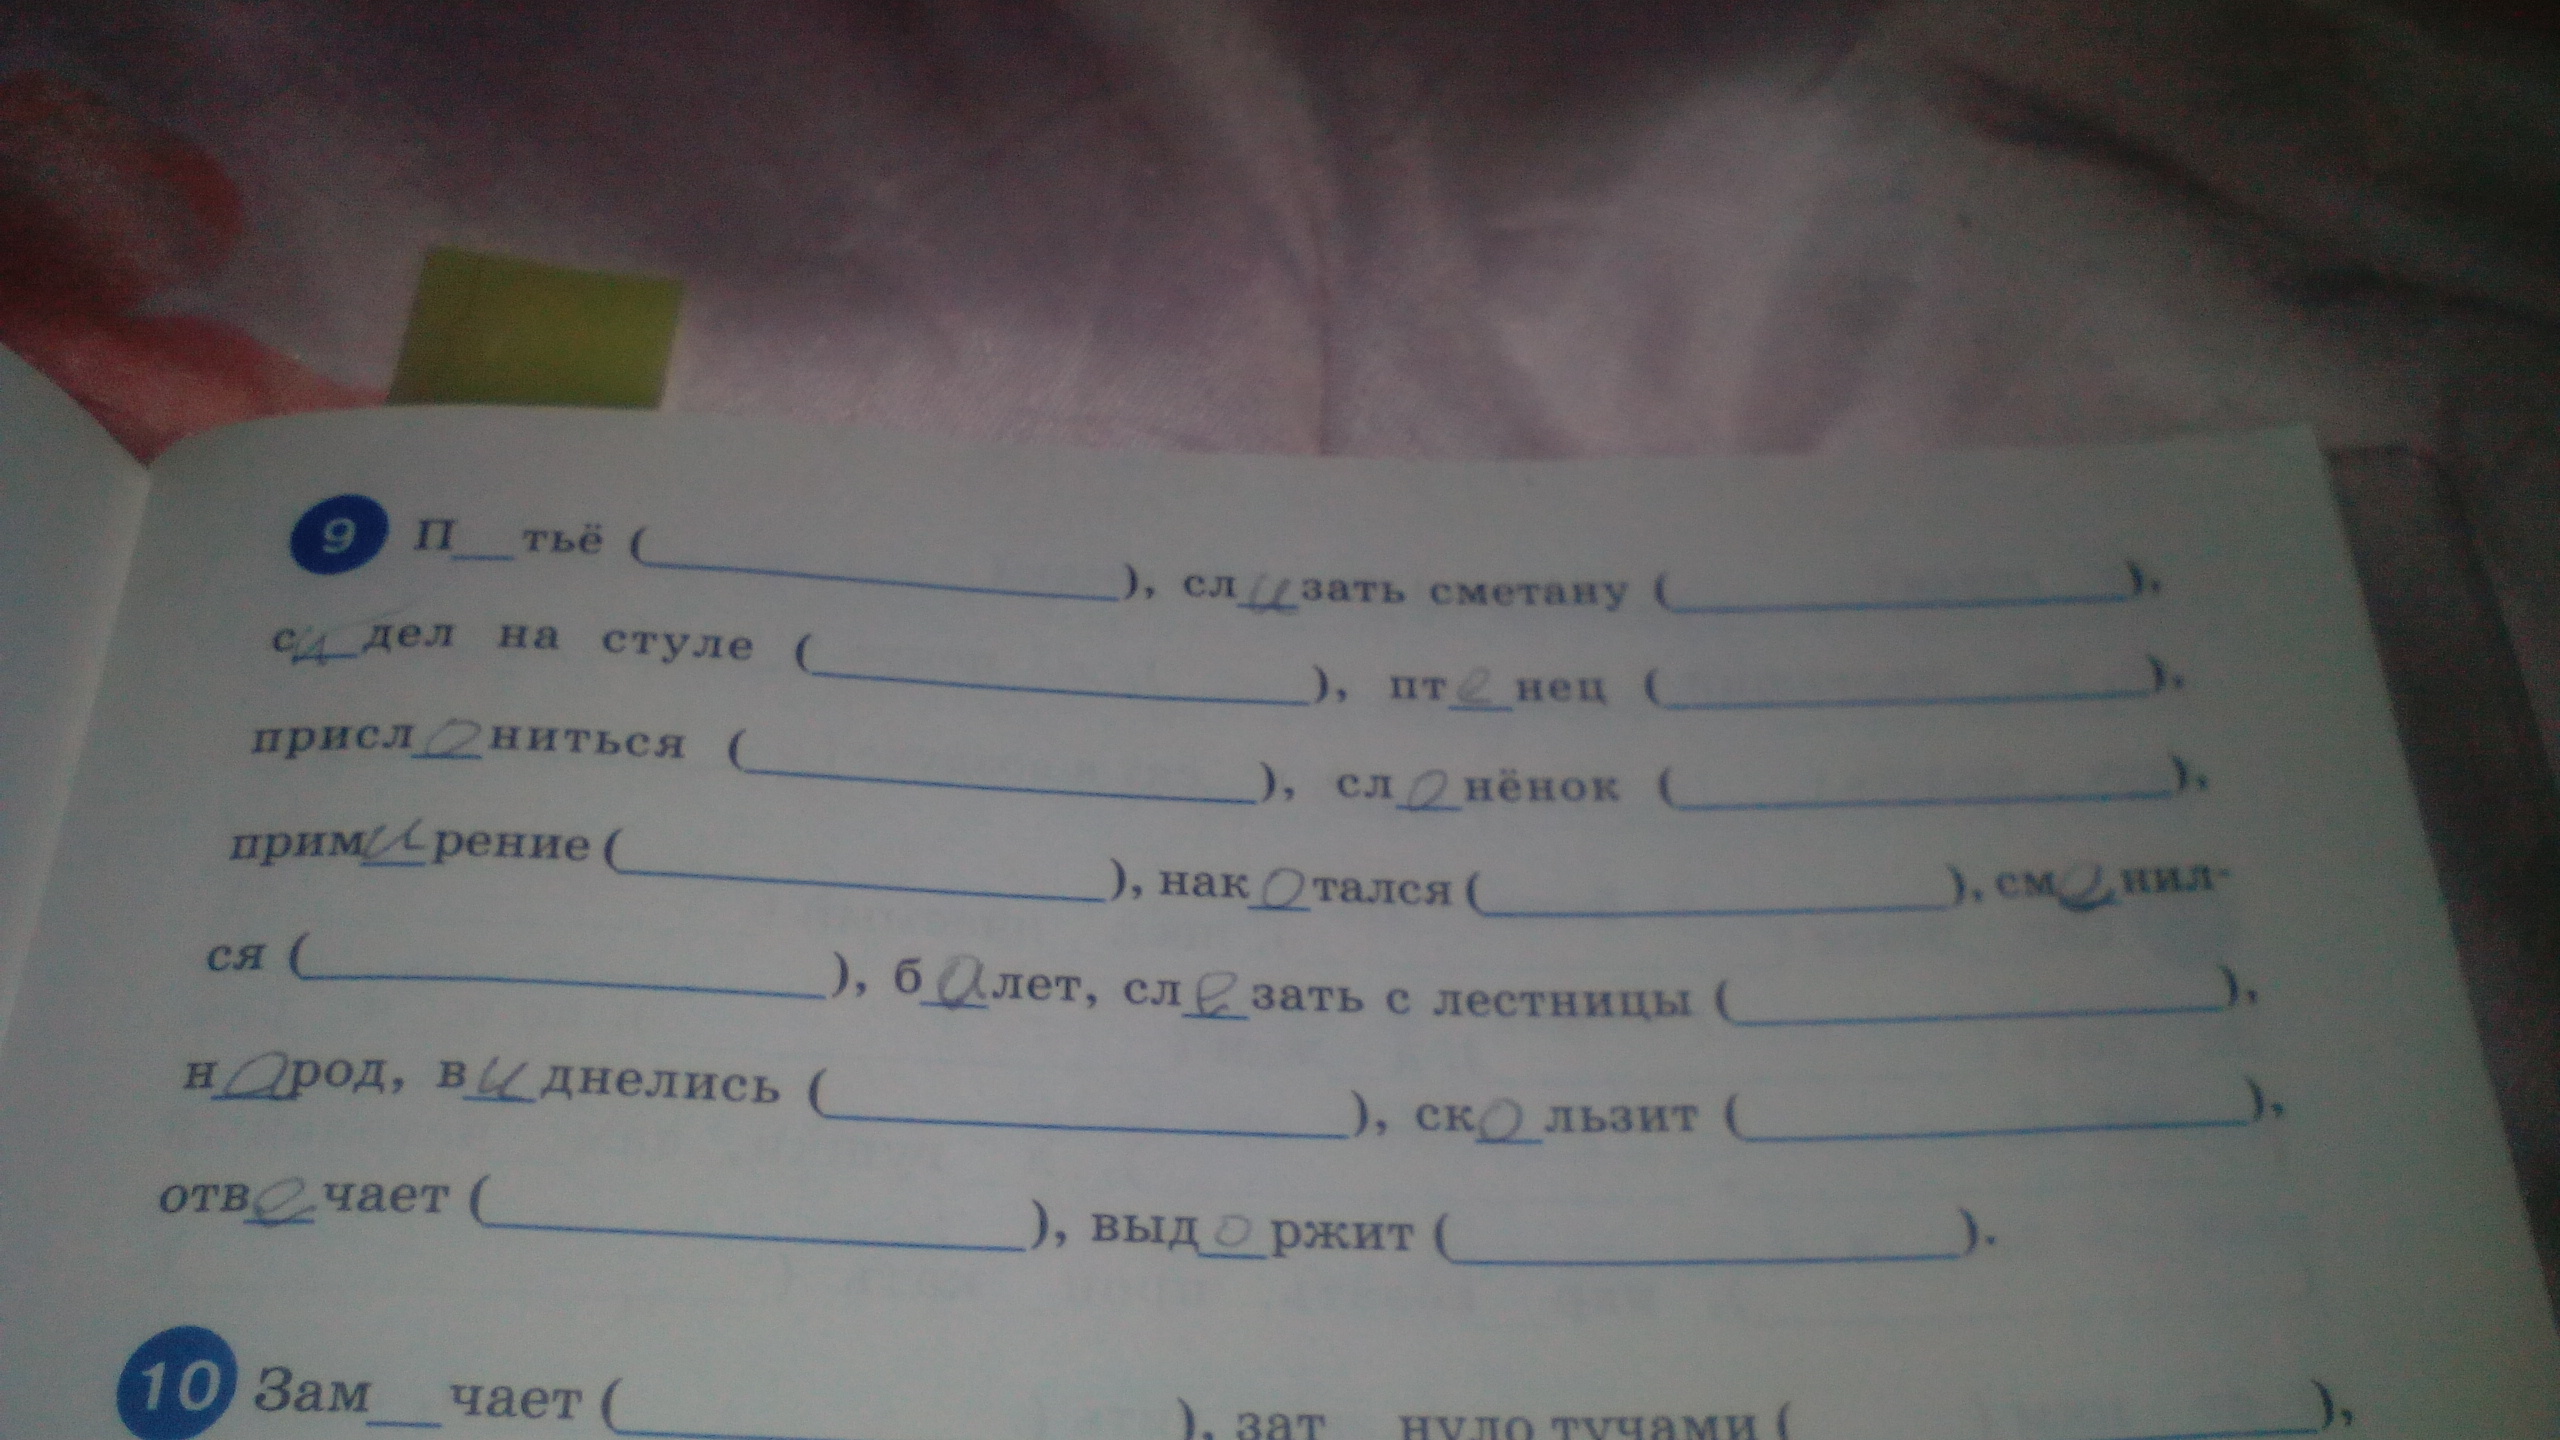 9 П__тьё (____), слизать сметану (____),
сидел на стуле (____), птенец (____),
прислониться (____), слонёнок (____),
примирение (____), накотался (____), сменил-
ся (____), балет, слезать с лестницы (____),
народ, виднелись (____), скользит (____),
отвечает (____), выдоржит (____).
10 Зам__чает (____), зат__нуло тучами (____),